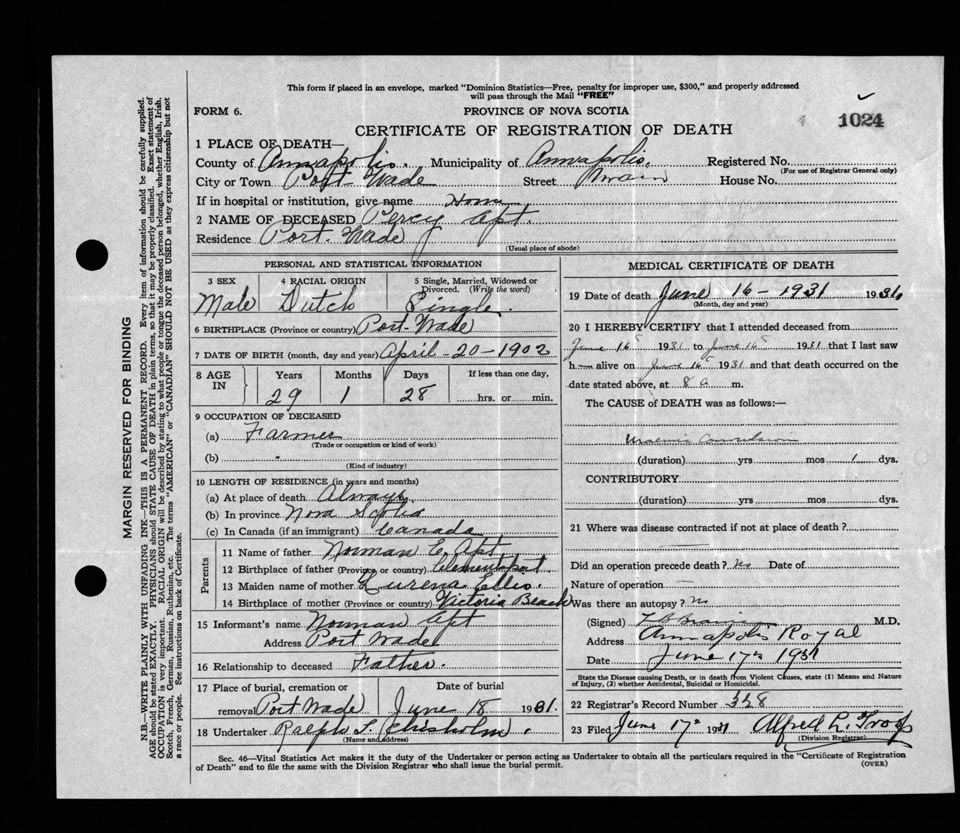 This form if placed in an envelope, marked "Dominion Statistics—Free, penalty for improper use, $300," and properly addressed
will pass through the Mail "FREE"
FORM 6.
PROVINCE OF NOVA SCOTIA
1024
CERTIFICATE OF REGISTRATION OF DEATH
1 PLACE OF DEATH—
County of Annapolis. Municipality of Annapolis. Registered No.
(For use of Registrar General only)
City or Town Port Wade Street Main House No.
If in hospital or institution, give name Home
2 NAME OF DECEASED Percy Apt
Residence Port. Wade
(Usual place of abode)
PERSONAL AND STATISTICAL INFORMATION
3 SEX 4 RACIAL ORIGIN 5 Single, Married, Widowed or
Divorced. (Write the word)
Male Dutch Single.
6 BIRTHPLACE (Province or country) Port-Wade
7 DATE OF BIRTH (month, day and year) April-20-1902
8 AGE IN Years Months Days If less than one day,
29 1 28 hrs. or min.
9 OCCUPATION OF DECEASED
(a) Farmer
(Trade or occupation or kind of work)
(b)
(Kind of industry)
10 LENGTH OF RESIDENCE (in years and months)
(a) At place of death Always.
(b) In province Nova Scotia
(c) In Canada (if an immigrant) Canada
Parents
11 Name of father Norman E. Apt
12 Birthplace of father (Province or country) Clementsport
13 Maiden name of mother Lurena Ellis.
14 Birthplace of mother (Province or country) Victoria Beach
15 Informant's name Norman Apt
Address Port Wade
16 Relationship to deceased Father.
17 Place of burial, cremation or Date of burial
removal Port Wade June 18 1931.
18 Undertaker Ralph L. Chisholm.
(Name and address)
MEDICAL CERTIFICATE OF DEATH
19 Date of death June 16-1931 1931.
(Month, day and year)
20 I HEREBY CERTIFY that I attended deceased from
June 16 1931 to June 16 1931 that I last saw
h alive on June 16 1931 and that death occurred on the
date stated above, at 8 a m.
The CAUSE of DEATH was as follows:—
Uraemic Convulsion
(duration) yrs mos 1 dys.
CONTRIBUTORY
(duration) yrs mos dys.
21 Where was disease contracted if not at place of death?
Did an operation precede death? No Date of
Nature of operation —
Was there an autopsy? No
(Signed) M.D.
Address Annapolis Royal
Date June 17th 1931
State the Disease causing Death, or in death from Violent Causes, state (1) Means and Nature
of Injury, (2) whether Accidental, Suicidal or Homicidal.
22 Registrar's Record Number 328
23 Filed June 17th 1931 Alfred L.
(Division Registrar)
Sec. 46—Vital Statistics Act makes it the duty of the Undertaker or person acting as Undertaker to obtain all the particulars required in the "Certificate of Registration
of Death" and to file the same with the Division Registrar who shall issue the burial permit.
(OVER)
MARGIN RESERVED FOR BINDING
N.B.—WRITE PLAINLY WITH UNFADING INK—THIS IS A PERMANENT RECORD. Every item of information should be carefully supplied.
AGE should be stated EXACTLY. PHYSICIANS should STATE CAUSE OF DEATH in plain terms, so that it may be properly classified. Exact statement of
OCCUPATION is very important. RACIAL ORIGIN will be described by stating to what people or tongue the deceased person belonged, whether English, Irish,
Scotch, French, German, Russian, Ruthenian, etc. The terms "AMERICAN" or "CANADIAN" SHOULD NOT BE USED as they express citizenship but not
a race or people. See instructions on back of Certificate.